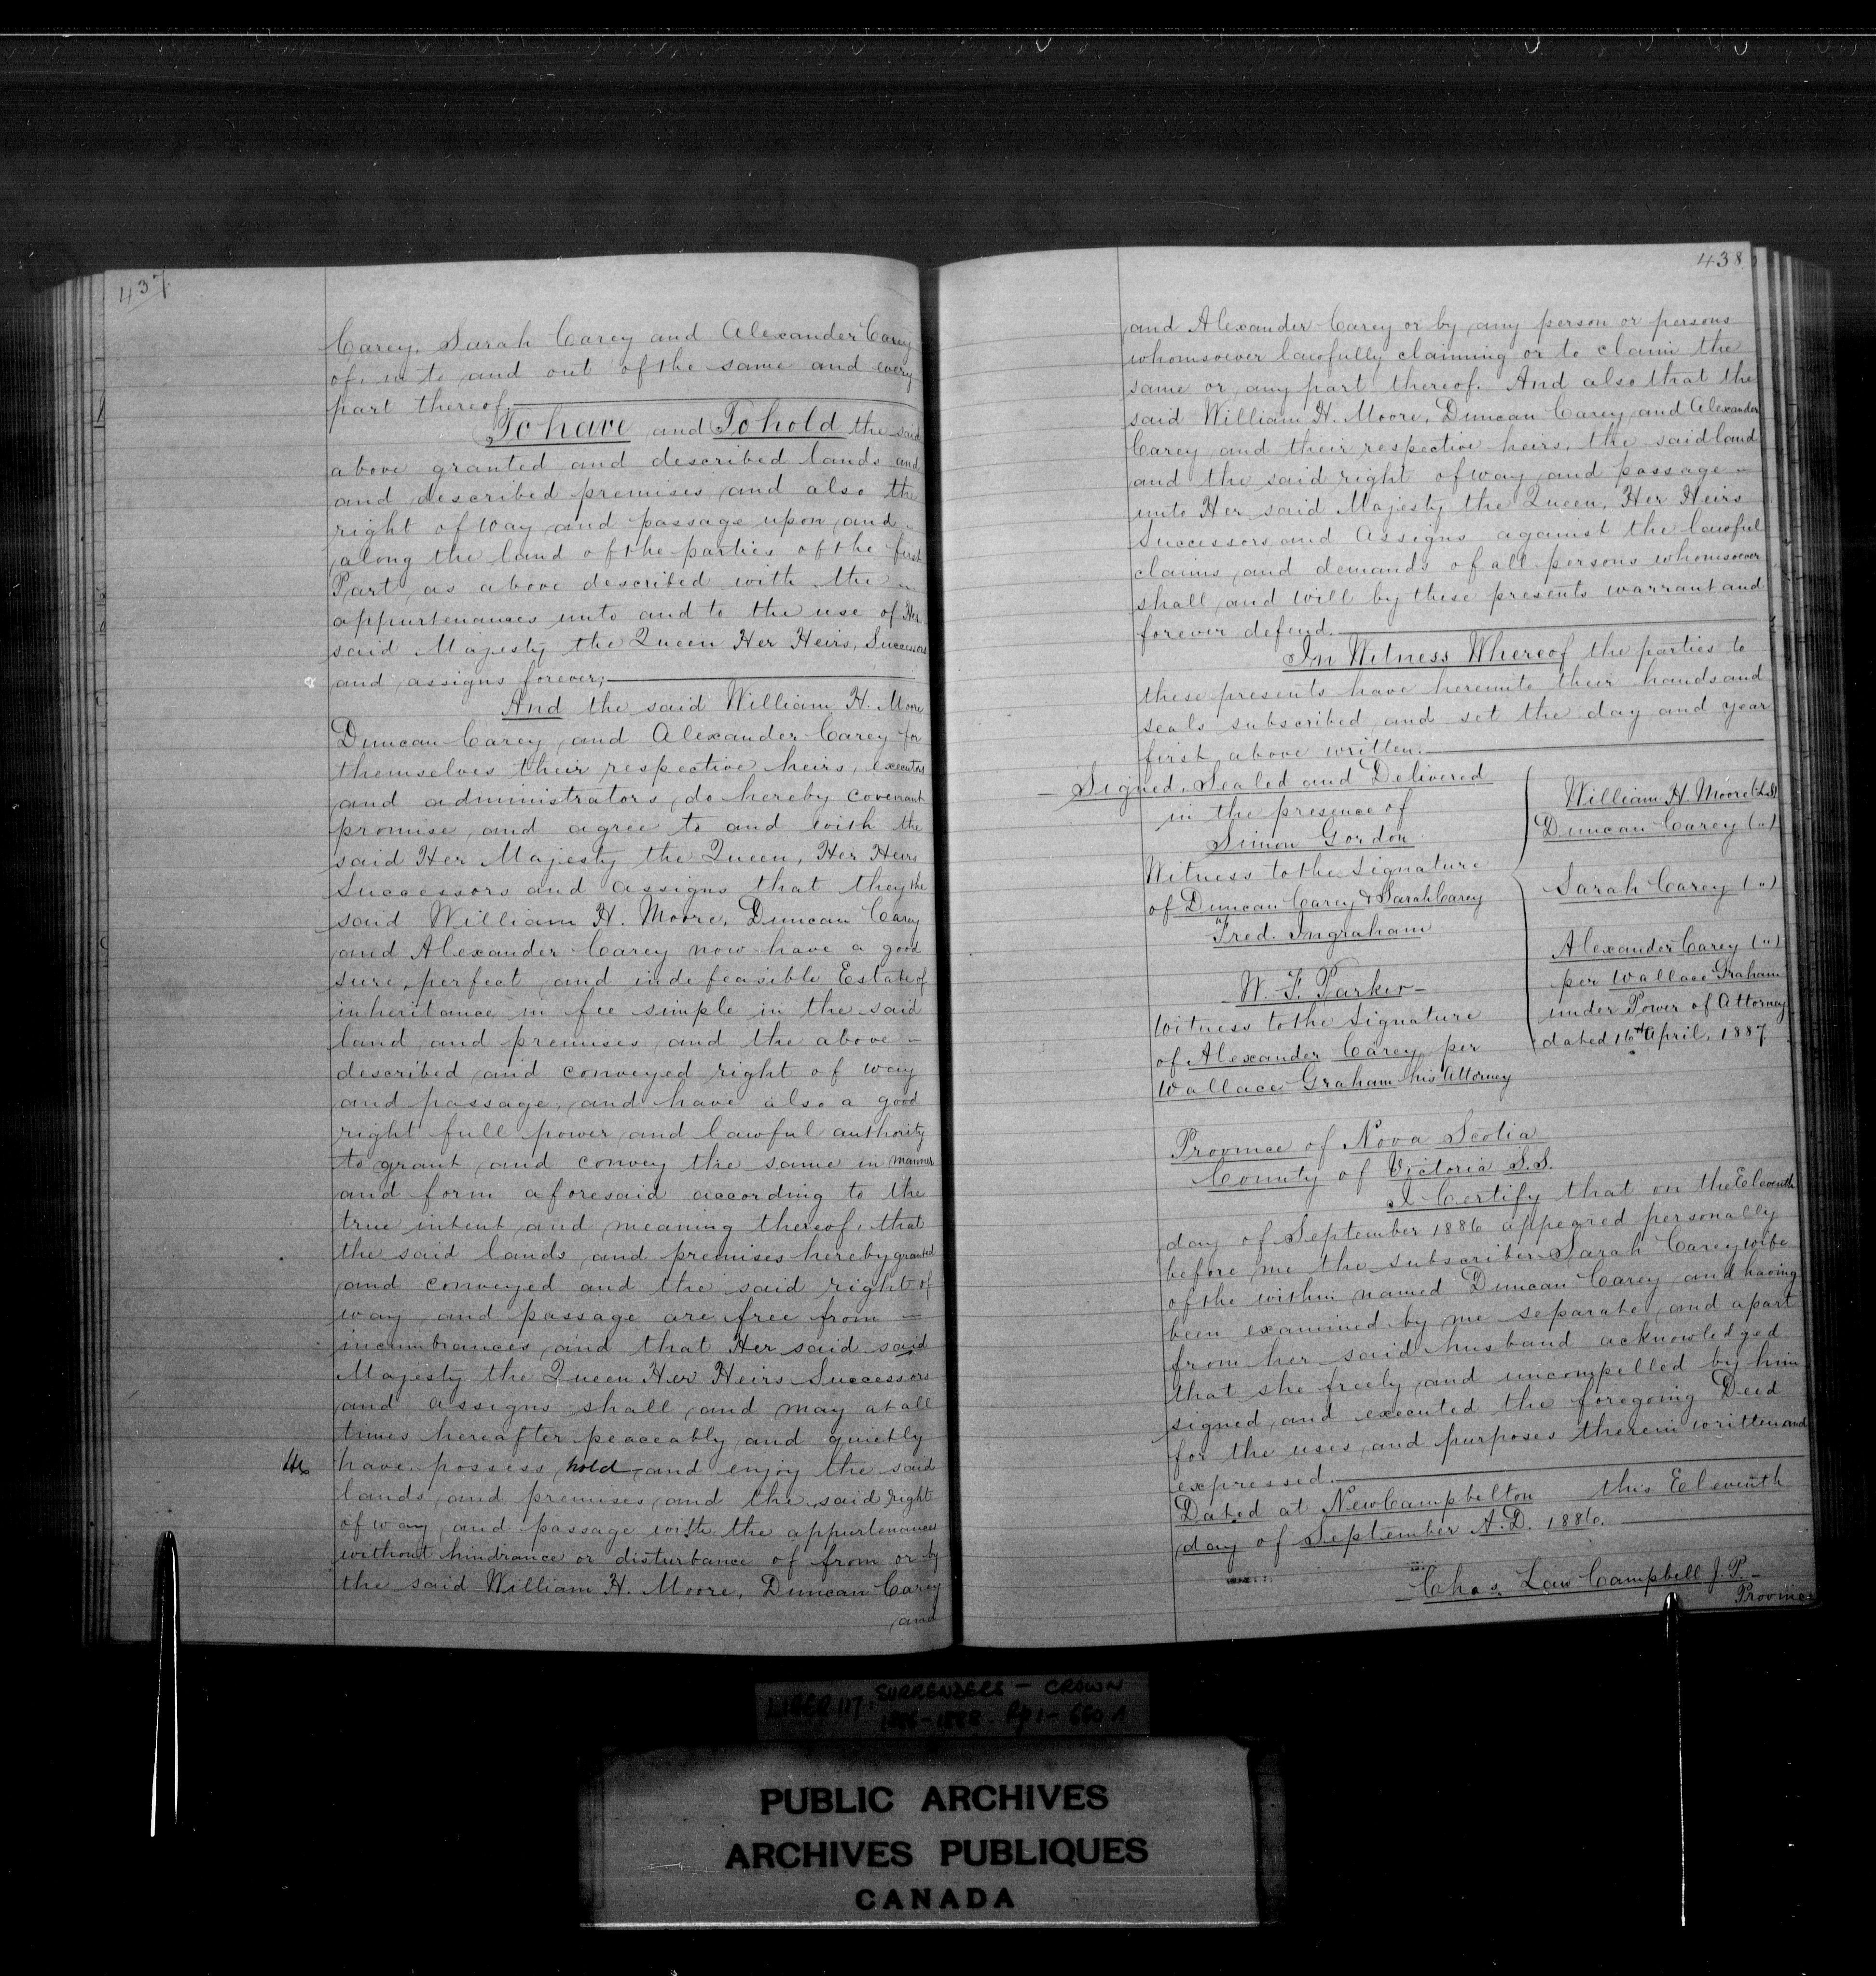 437
Carey, Sarah Carey and Alexander Carey
of, in to and out of the same and every
part thereof
To have and To hold the said
above granted and described lands and
and described premises and also the
right of way and passage upon and
along the land of the parties of the first
Part as above described with the
appurtenances unto and to the use of Her
said Majesty the Queen Her Heirs, Successors
and assigns forever;
And the said William H. Moore
Duncan Carey and Alexander Carey for
themselves their respective heirs, executors
and administrators do hereby covenant
promise and agree to and with the
said Her Majesty the Queen, Her Heirs
Successors and assigns that they the
said William H. Moore, Duncan Carey
and Alexander Carey now have a good
sure, perfect and indefeasible Estate of
inheritance in fee simple in the said
land and premises and the above
described and conveyed right of way
and passage, and have also a good
right full power and lawful authority
to grant and convey the same in manner
and form aforesaid according to the
true intent and meaning thereof, that
the said lands and premises hereby granted
and conveyed and the said right of
way and passage are free from
incumbrances and that Her said said
Majesty the Queen Her Heirs Successors
and assigns shall and may at all
times hereafter peaceably and quietly
have, possess, hold and enjoy the said
lands and premises and the said right
of way and passage with the appurtenances
without hindrance or disturbance of from or by
the said William H. Moore, Duncan Carey
and
438
and Alexander Carey or by any person or persons
whomsoever lawfully claiming or to claim the
same or any part thereof. And also that the
said William H. Moore, Duncan Carey and Alexander
Carey and their respective heirs, the said land
and the said right of way and passage
unto Her said Majesty the Queen, Her Heirs
Successors and Assigns against the lawful
claims and demands of all persons whomsoever
shall and will by these presents warrant and
forever defend.
In Witness Whereof the parties to
these presents have hereunto their hands and
seals subscribed and set the day and year
first above written.
Signed, Sealed and Delivered
in the presence of
Simon Gordon
Witness to the Signature
of Duncan Carey & Sarah Carey
Fred. Ingraham
W. F. Parker
Witness to the Signature
of Alexander Carey, per
Wallace Graham his Attorney
William H. Moore (L.S)
Duncan Carey (")
Sarah Carey (")
Alexander Carey (")
per Wallace Graham
under Power of Attorney
dated 16th April, 1887
Province of Nova Scotia
County of Victoria S.S.
I Certify that on the Eleventh
day of September 1886 appeared personally
before me the subscriber Sarah Carey wife
of the within named Duncan Carey and having
been examined by me separate and apart
from her said husband acknowledged
that she freely and uncompelled by him
signed and executed the foregoing Deed
for the uses and purposes therein written and
expressed.
Dated at New Campbelton this Eleventh
day of September A.D. 1886.
Chas. Law Campbell J.P.
Province
LIBER 117: SURRENDERS - CROWN
1886-1888. Pp 1-660 A
PUBLIC ARCHIVES
ARCHIVES PUBLIQUES
CANADA